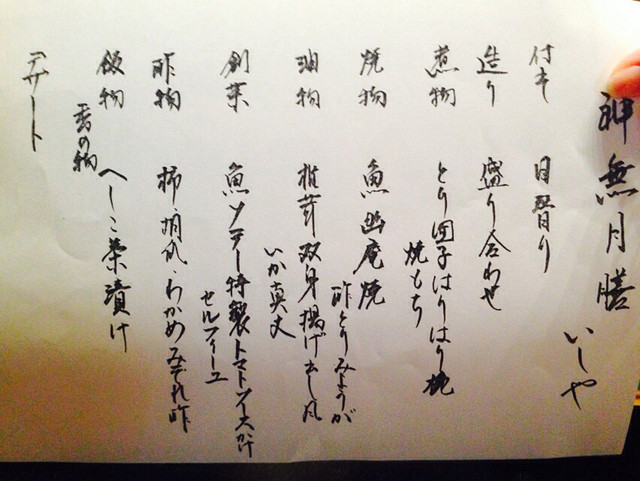 神無月膳
いしや
付き 日替り
造り 盛り合わせ
煮物 とり団子はりはり椀
焼もち
焼物 魚幽庵焼
酢とりみょうが
油物 椎茸双身揚げ出し風
いか真丈
創菜 魚ソテー特製トマトソースかけ
セルフィーユ
酢物 柿・胡瓜・わかめみぞれ酢
飯物 へしこ茶漬け
香の物
デザート